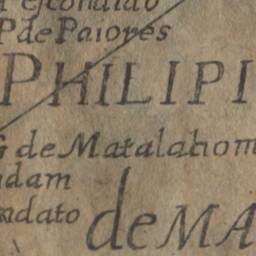 escondido
P de Paiores
PHILIPI
G de Matalahom
adam
adato de MA